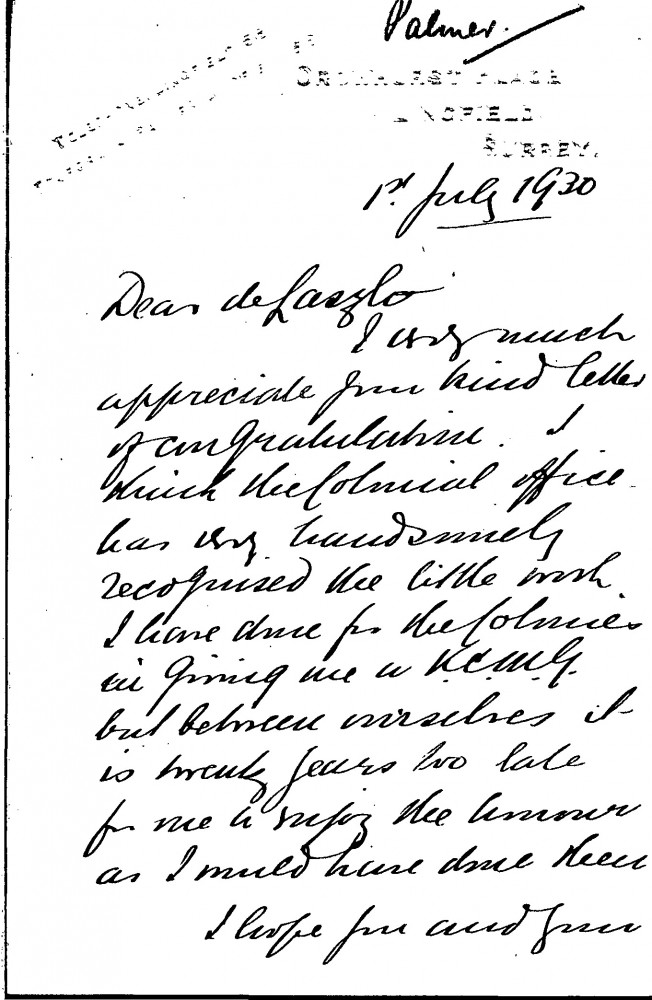 Palmer.
CROWHURST PLACE
LINGFIELD
SURREY.
1st July 1930
Dear de Laszlo
I very much
appreciate your kind letter
of congratulation. I
think the Colonial Office
has very handsomely
recognised the little work
I have done for the Colonies
in giving me a K.C.M.G.
but between ourselves it
is twenty years too late
for me to enjoy the honour
as I would have done then
I hope you and your